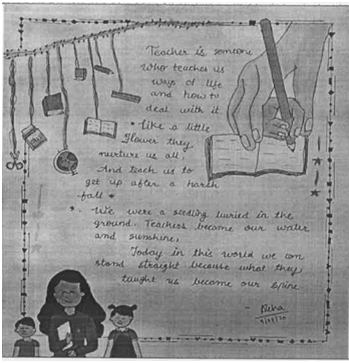 Teacher is someone
who teaches us
ways of life
and how to
deal with it
• Like a little
flower they
nurture us all,
And teach us to
get up after a harsh
fall •
• We were a seedling buried in the
ground. Teachers became our water
and sunshine,
Today in this world we can
stand straight because what they
taught us became our spine
- Neha